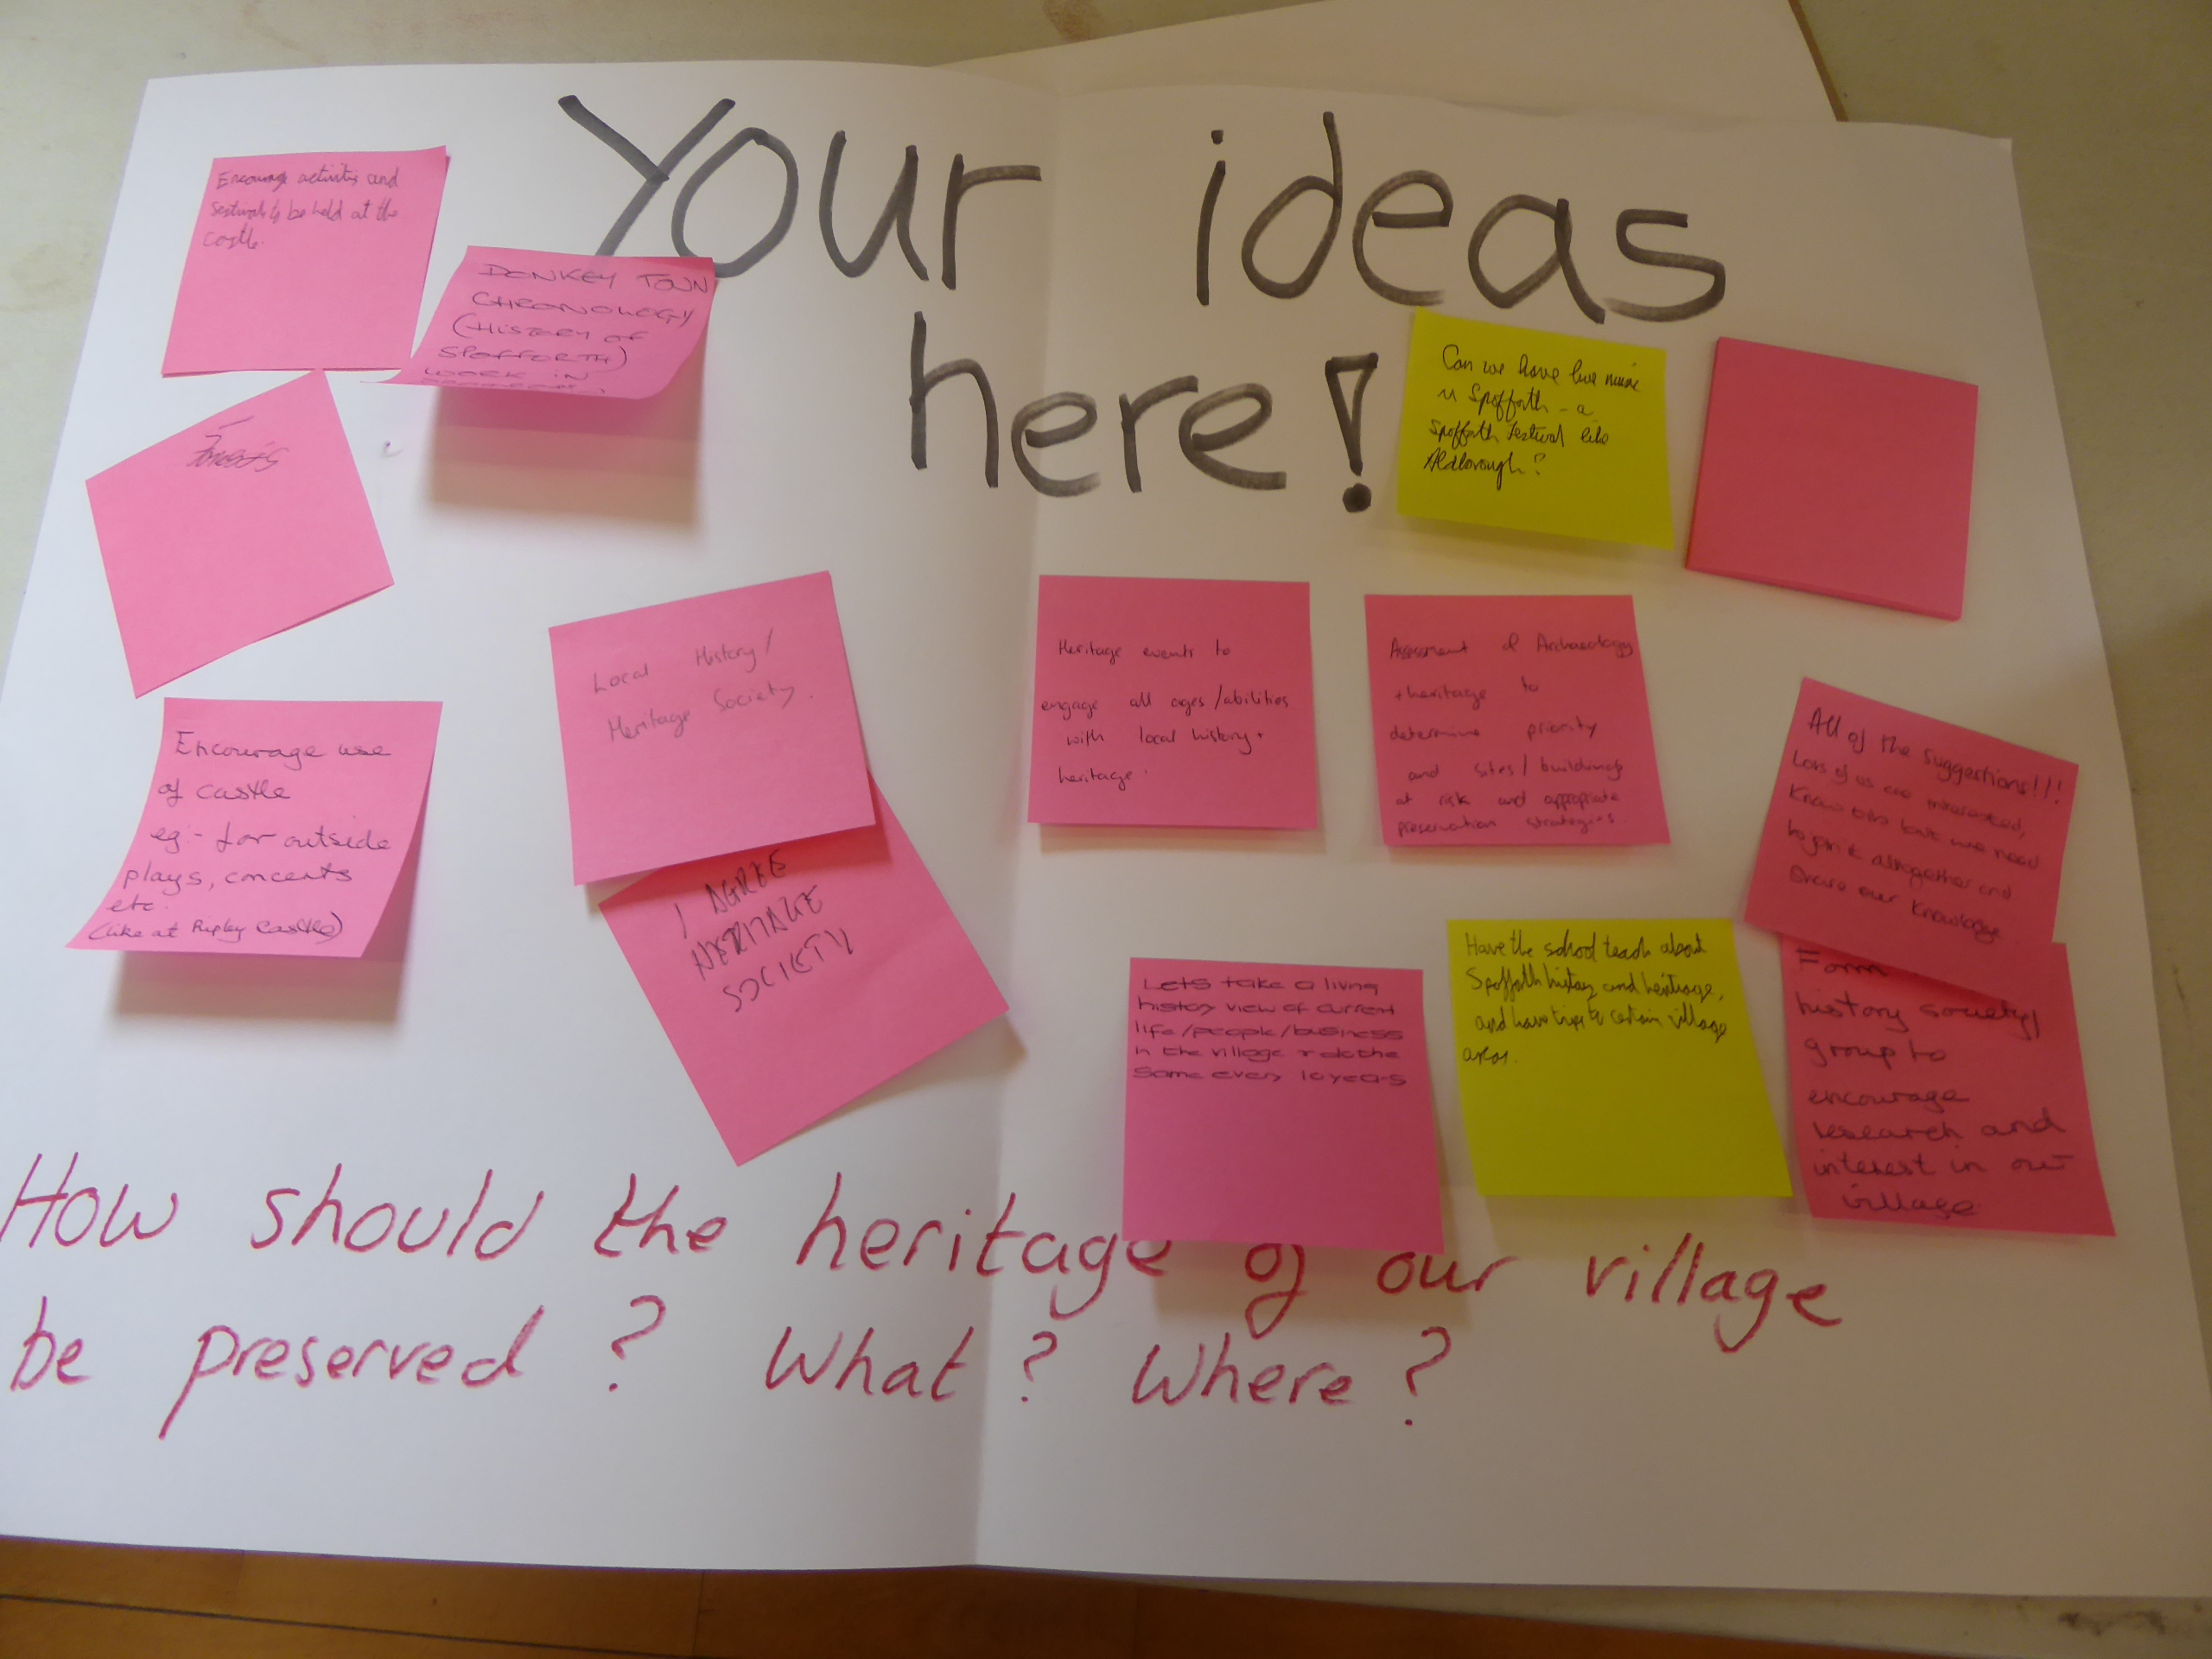 Your ideas
here!
Encourage activities and
festivals to be held at the
castle.
DONKEY TOWN
CHRONOLOGY
(HISTORY OF
SPOFFORTH)
WORK IN
Can we have live music
in Spofforth - a
Spofforth Festival like
Aldborough?
Encourage use
of castle
eg:- for outside
plays, concerts
etc.
(like at Ripley Castle)
Local History/
Heritage Society.
I AGREE
HERITAGE
SOCIETY
Heritage events to
engage all ages/abilities
with local history +
heritage.
Assessment of Archaeology
+ heritage to
determine priority
and sites/buildings
at risk and appropriate
preservation strategies.
All of the suggestions!!!
Lots of us are interested,
know bits but we need
to join it altogether and
share our knowledge
Lets take a living
history view of current
life/people/business
in the village + do the
same every 10 years
Have the school teach about
Spofforth history and heritage,
and have trips to certain village
areas.
Form
history society/
group to
encourage
research and
interest in our
village
How should the heritage of our village
be preserved? What? Where?